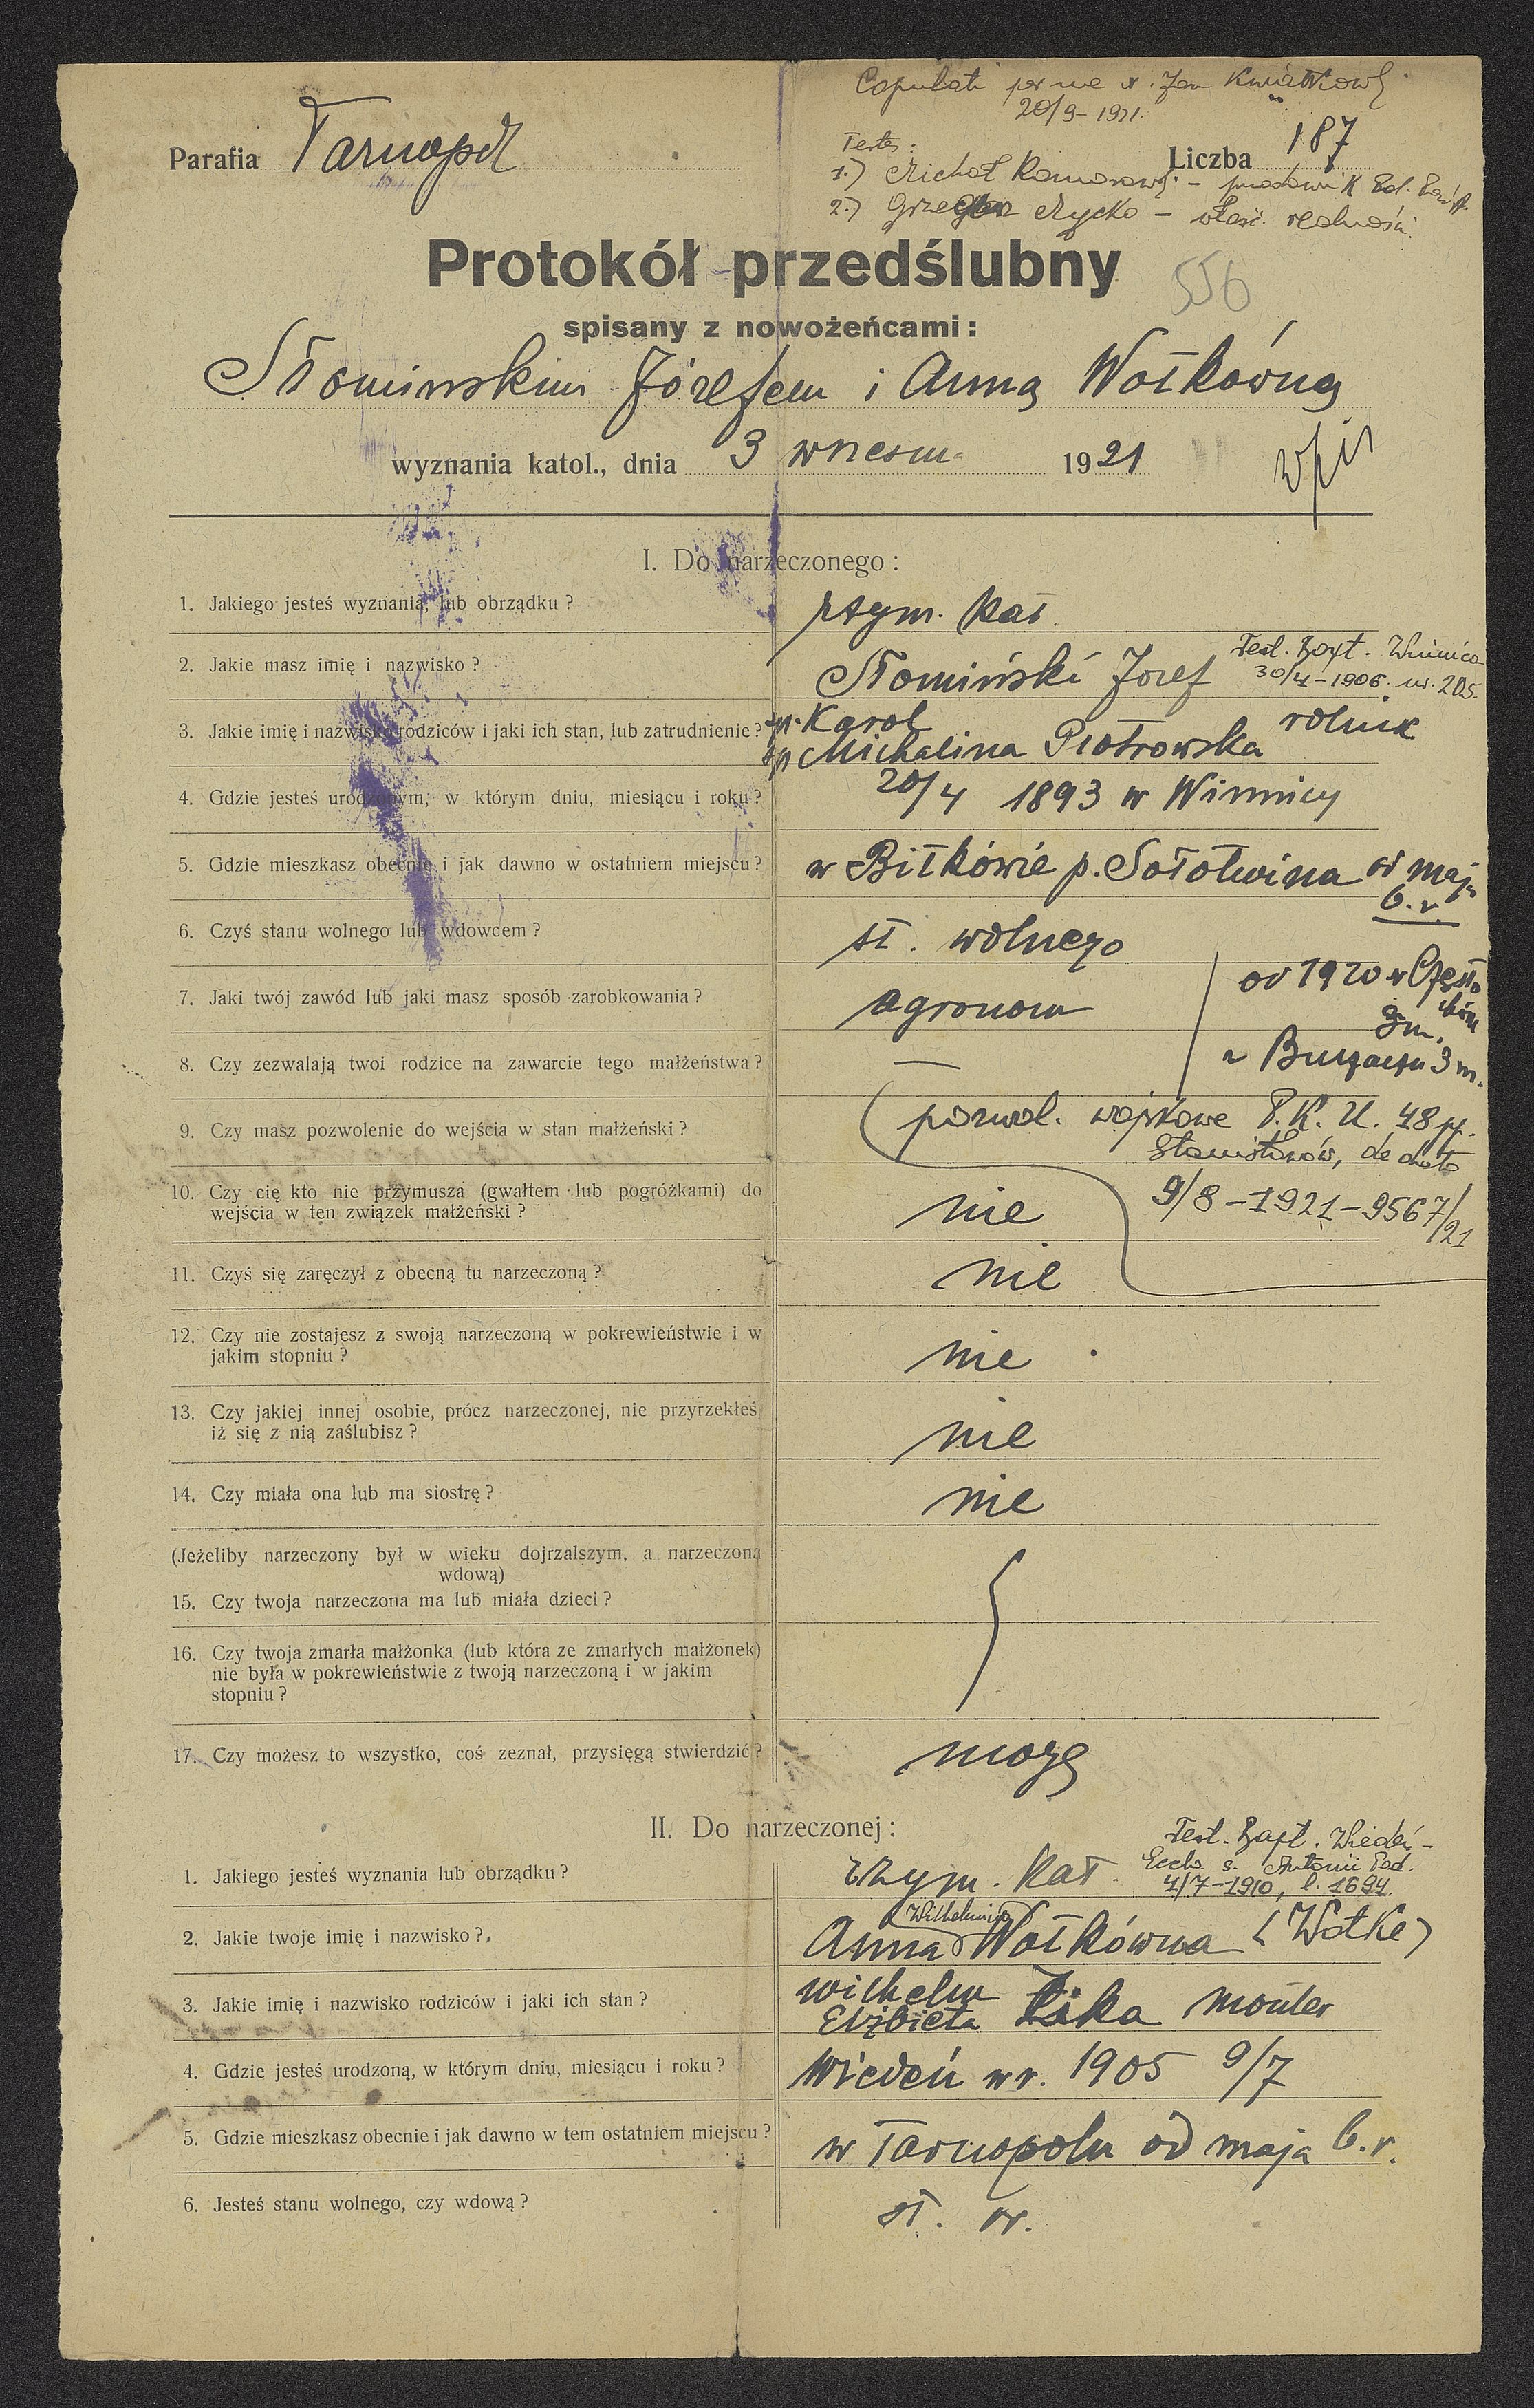 Copulati per me x. Jan Kwiatkowski
20/9 - 1921.
Parafia Tarnopol
Testes:
Liczba 187
1.) Michał Komorowski - Pol. Państ.
2.) Grzegorz Mycko - właśc. realności.
Protokół przedślubny
556
spisany z nowożeńcami:
Słomińskim Józefem i Anną Wołkówną
wyznania katol., dnia 3 wrześn. 1921
wpis
I. Do narzeczonego:
1. Jakiego jesteś wyznania, lub obrządku? rzym. kat.
2. Jakie masz imię i nazwisko? Słomiński Józef
Test. Bapt. Winnica
30/4 - 1906. nr. 205.
3. Jakie imię i nazwisko rodziców i jaki ich stan, lub zatrudnienie? śp. Karol rolnik
śp Michalina Piotrowska
4. Gdzie jesteś urodzonym, w którym dniu, miesiącu i roku? 20/4 1893 w Winnicy
5. Gdzie mieszkasz obecnie i jak dawno w ostatniem miejscu? w Bitkówie p. Sołotwina od maja
b. r.
6. Czyś stanu wolnego lub wdowcem? st. wolnego
7. Jaki twój zawód lub jaki masz sposób zarobkowania? agronom
od 1920 w
3 m.
8. Czy zezwalają twoi rodzice na zawarcie tego małżeństwa? —
w Buczaczu 3 m.
9. Czy masz pozwolenie do wejścia w stan małżeński? pozwol. wojskowe P. K. U. 48 pp.
Stanisławów, de dato
9/8 - 1921 - 9567/21
10. Czy cię kto nie przymusza (gwałtem lub pogróżkami) do
wejścia w ten związek małżeński? nie
11. Czyś się zaręczył z obecną tu narzeczoną? nie
12. Czy nie zostajesz z swoją narzeczoną w pokrewieństwie i w
jakim stopniu? nie
13. Czy jakiej innej osobie, prócz narzeczonej, nie przyrzekłeś,
iż się z nią zaślubisz? nie
14. Czy miała ona lub ma siostrę? nie
(Jeżeliby narzeczony był w wieku dojrzalszym, a narzeczona
wdową)
15. Czy twoja narzeczona ma lub miała dzieci?
16. Czy twoja zmarła małżonka (lub która ze zmarłych małżonek)
nie była w pokrewieństwie z twoją narzeczoną i w jakim
stopniu?
17. Czy możesz to wszystko, coś zeznał, przysięgą stwierdzić? mogę
II. Do narzeczonej:
Test. Bapt. Wiedeń -
Eccls s. Antonii Pad.
4/7 - 1910, l. 1694.
1. Jakiego jesteś wyznania lub obrządku? rzym. kat.
2. Jakie twoje imię i nazwisko? Anna Wilhelmina Wołkówna (Wotke)
3. Jakie imię i nazwisko rodziców i jaki ich stan? Wilhelm
Elżbieta Żika monter
4. Gdzie jesteś urodzoną, w którym dniu, miesiącu i roku? Wiedeń w r. 1905 9/7
5. Gdzie mieszkasz obecnie i jak dawno w tem ostatniem miejscu? w Tarnopolu od maja b. r.
6. Jesteś stanu wolnego, czy wdową? st. w.